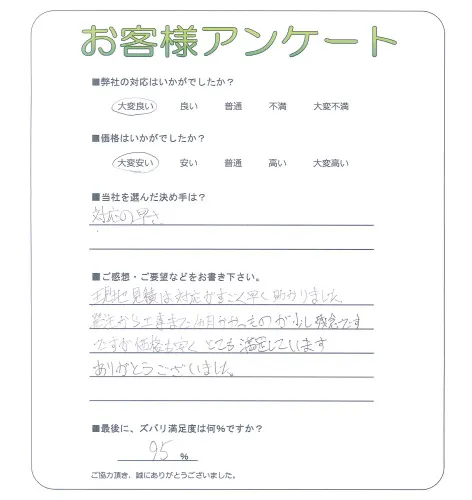 お客様アンケート
■弊社の対応はいかがでしたか？
大変良い 良い 普通 不満 大変不満
■価格はいかがでしたか？
大変安い 安い 普通 高い 大変高い
■当社を選んだ決め手は？
対応の早さ
■ご感想・ご要望などをお書き下さい。
現地見積は対応がすごく早く助かりました
発注から工事まで1ヵ月かかったものが少し残念です
ですが価格も安くとても満足しています
ありがとうございました。
■最後に、ズバリ満足度は何%ですか？
95 %
ご協力頂き、誠にありがとうございました。